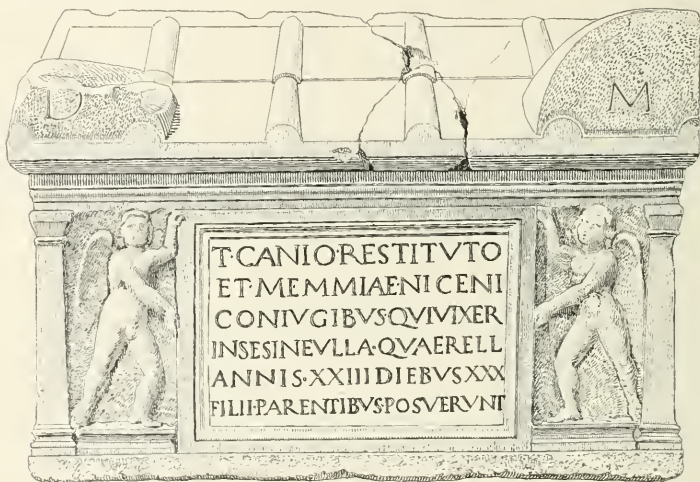 D M
T·CANIO·RESTITVTO
ET·MEMMIAE·NICENI
CONIVGIBVS·QVIVIXER
INSESINEVLLA·QVAERELL
ANNIS·XXIII DIEBVSXXX
FILII·PARENTIBVS·POSVERVNT